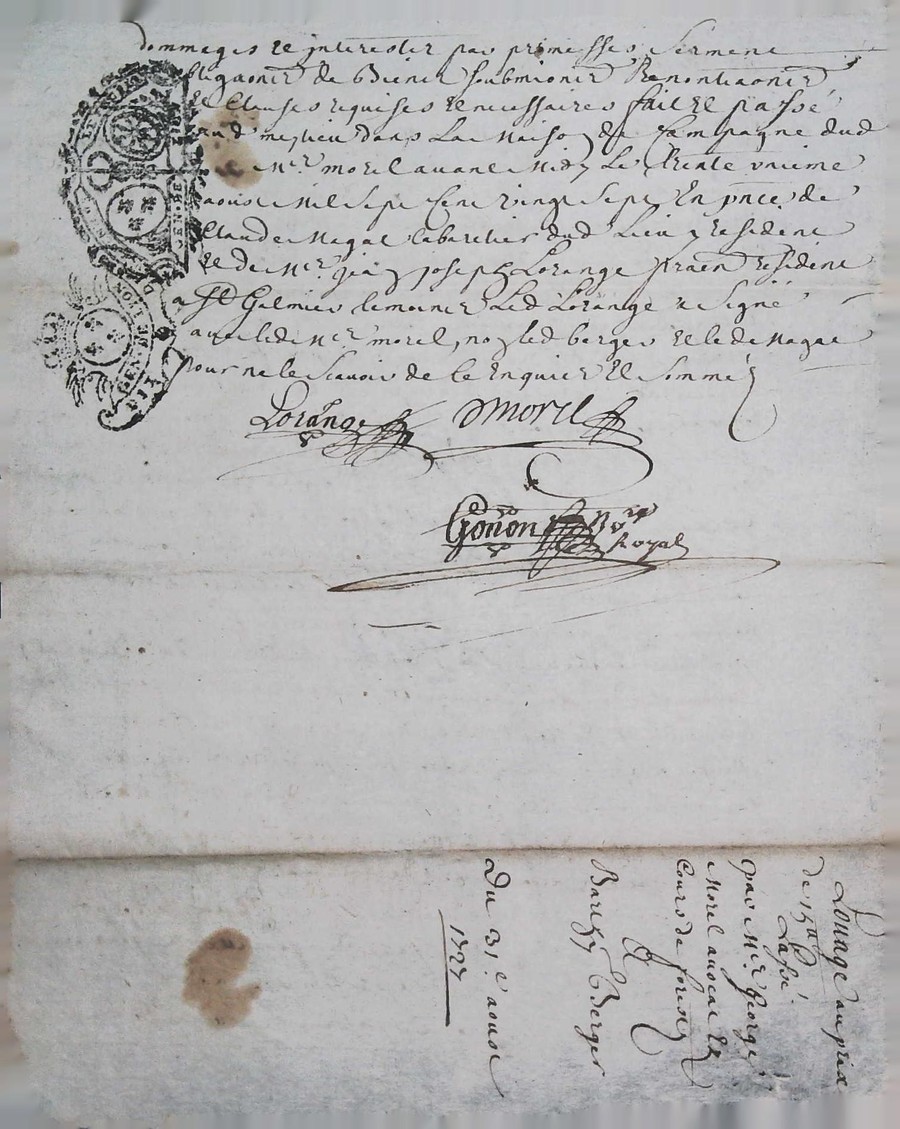 dommages et interestz par promesses serment
obligaõns de biens soubmions renontiaõns
et clauses requises et necessaires fait et passé
aud meylieu dans la maison de Campagne dud
Mr morel avant midy le trente unieme
aoust mil sept cent vingt sept En pnce de
Claude Magat cabartier dud Lieu y resident
et de Mre Jean joseph Lorange praen resident
a St Galmier temoins Led Lorange a signé
avec led Mr morel, non led berger et led Magat
pour ne le scavoir de ce Enquis et sommé
Lorange Morel
Gonon Nre
Royal
Louage au prix
de 15ll
Passé
par Mre George
Morel avocat ez
Cours de forestz
A
Bar Berger
Du 31e aoust
1727
GEN DE LYON